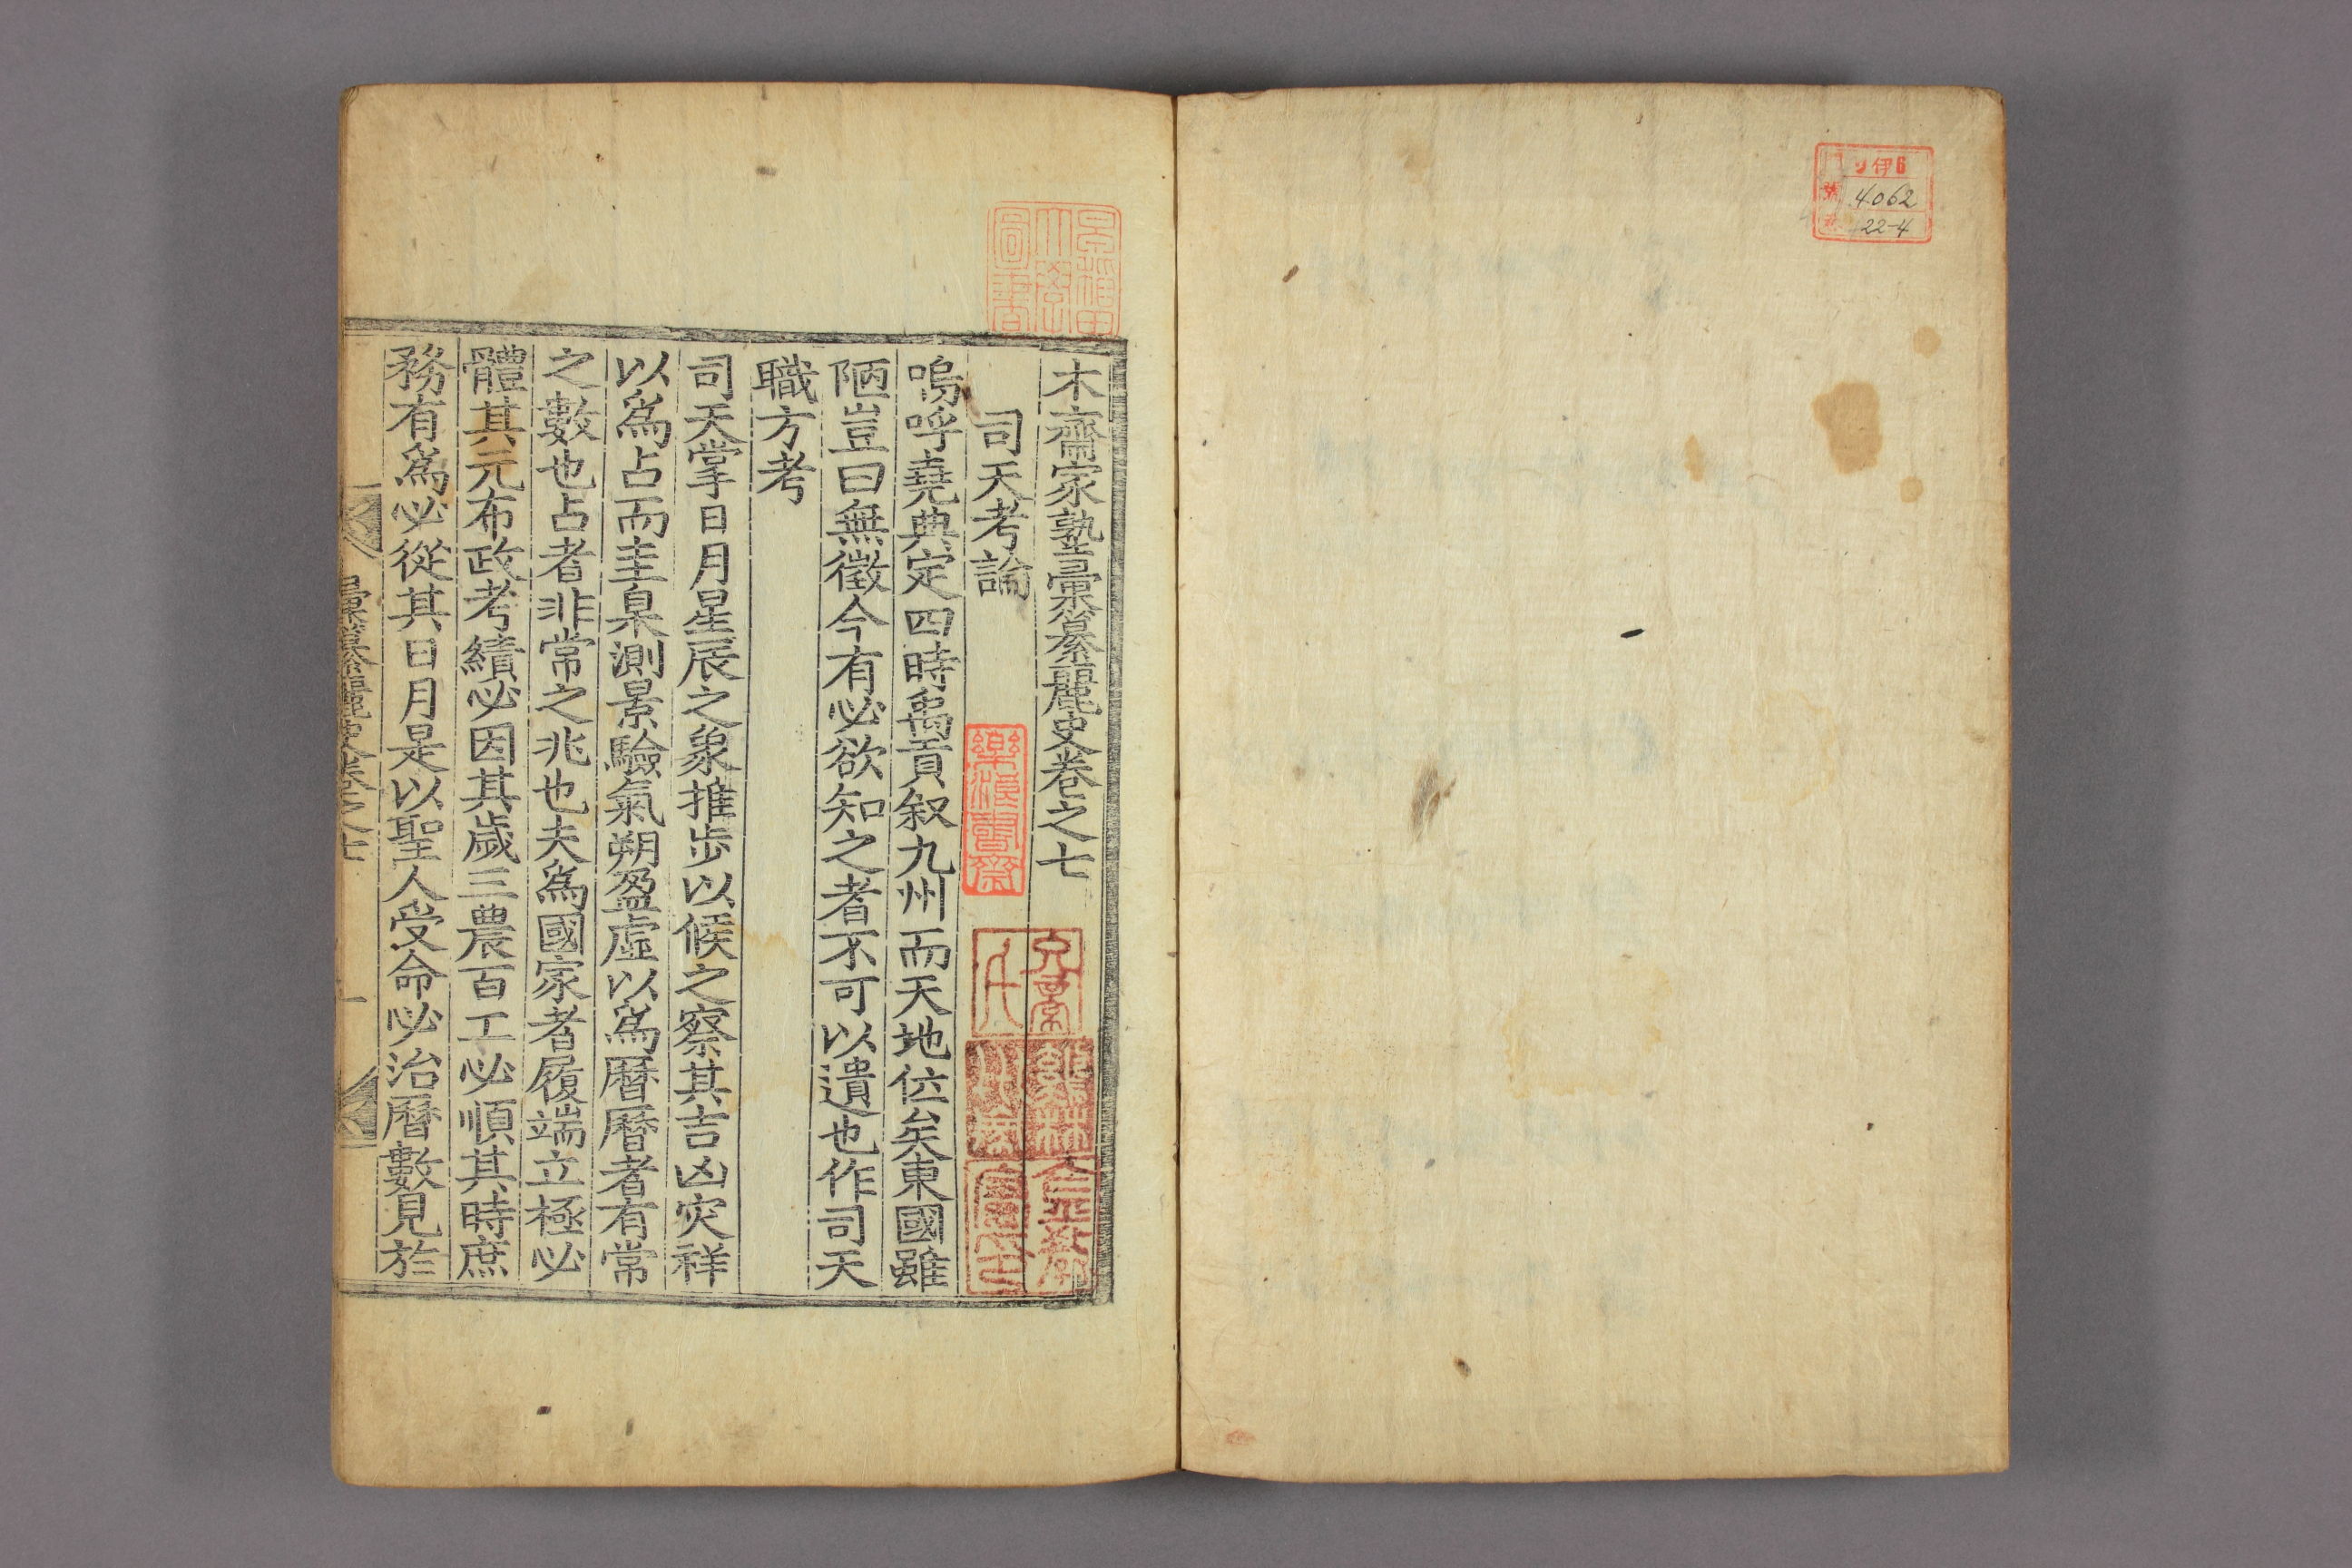 伊6
4062
22-4
木齋家塾彙纂麗史卷之七
司天考論
嗚呼堯典定四時禹貢叙九州而天地位矣東國雖
陋豈曰無徵今有必欲知之者不可以遺也作司天
職方考
司天掌日月星辰之象推步以候之察其吉凶灾祥
以爲占而圭臬測景驗氣朔盈虛以爲曆曆者有常
之數也占者非常之兆也夫爲國家者履端立極必
體其元布政考績必因其歲三農百工必順其時庶
務有爲必從其日月是以聖人受命必治曆數見於
彙纂麗史卷之七
一